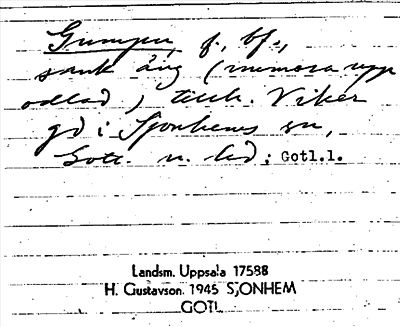 Gumpen, f., bf.,
sank äng (numera upp
odlad) tillh. Viker
gd i Sjonhems sn,
Gotl. n. hd; Gotl.l.
Landsm. Uppsala 17588
H. Gustavson 1945 SJONHEM
GOTL